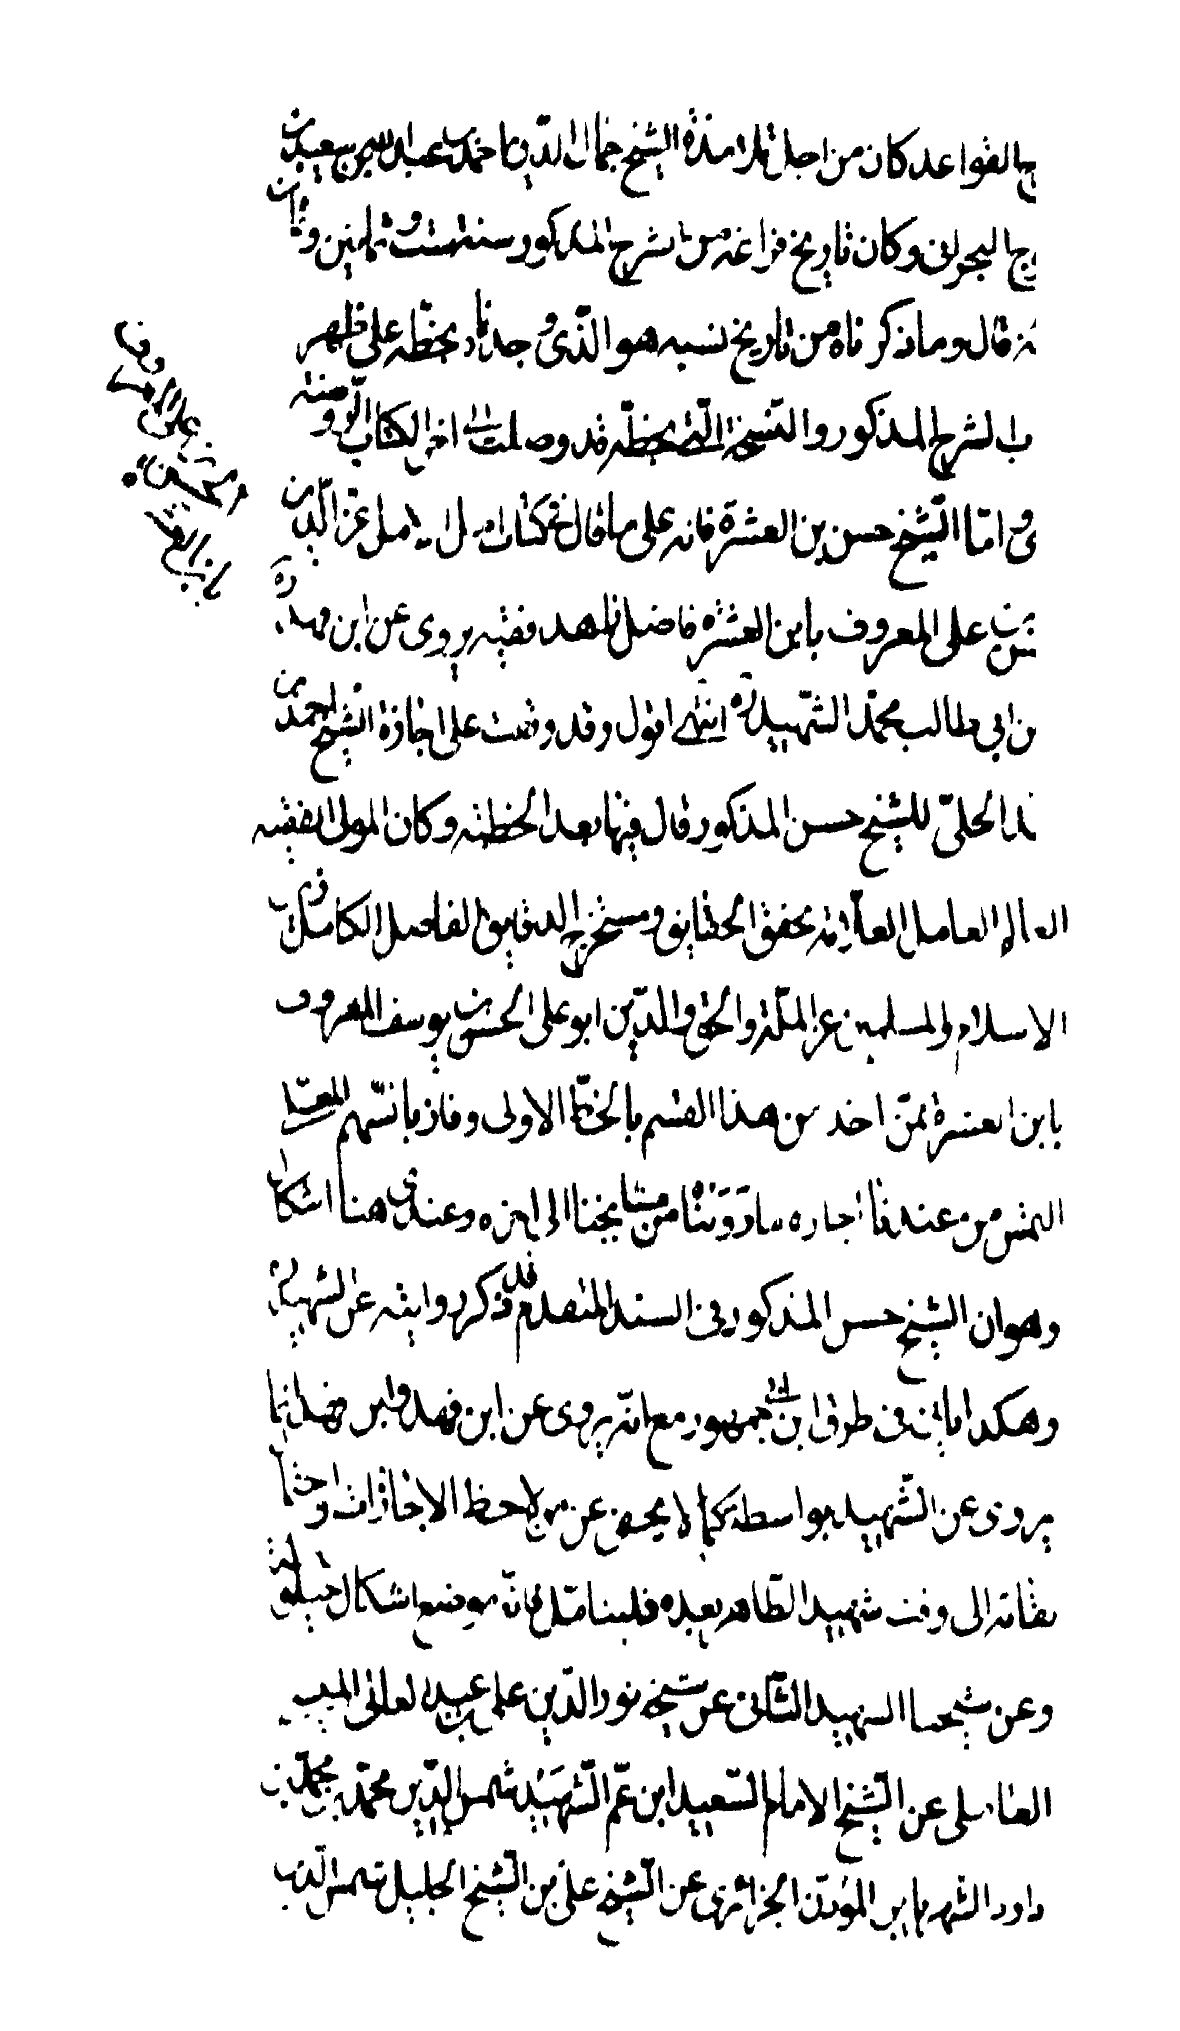 القواعد كان من اجل تلامذة الشيخ جمال الدين احمد بن عبد الله بن سعيد بن
المتوج البحراني وكان تاريخ فراغه من الشرح المذكور سنة ست وثمانين وثمان
قال وما ذكرناه من تاريخ نسبه هو الذي وجدناه بخطه على ظهر
الشرح المذكور والنسخة التي بخطه قد وصلت الى اخر الكتاب الروضة
واما الشيخ حسن بن العشرة فانه على ما قال في كتاب امل الامل عز الدين
حسن بن علي المعروف بابن العشره فاضل زاهد فقيه يروي عن ابن فهد ره
بن ابي طالب محمد الشهيد ره انتهى اقول وقد وقفت على اجازة الشيخ احمد بن
الحلي للشيخ حسن المذكور قال فيها بعد الخطبة وكان المولى الفقيه
العالم العامل العلامة محقق الحقايق ومستخرج الدقايق الفاضل الكامل زين
الاسلام والمسلمين عز الملة والحق والدين ابو علي الحسن بن يوسف المعروف
بابن العشرة ممن اخذ من هذا القسم بالحظ الاولى وفاز بالسهم المعلى
التمس من عندنا اجازه ما رويناه من مشايخنا الى اخره وعندي هنا اشكال
وهو ان الشيخ حسن المذكور في السند المتقدم قد ذكر روايته عن الشهيد ره
وهكذا ياتي في طرق ابن ابي جمهور مع انه يروي عن ابن فهد وابن فهد انما
يروي عن الشهيد بواسطة كما لا يخفى على من لاحظ الاجازات واحتمال
بقائه الى وقت شهيد الظاهر بعده فليتامل فانه موضع اشكال
وعن شيخنا الشهيد الثاني عن شيخه نور الدين علي بن عبد العالي الميسي
العاملي عن الشيخ الامام السعيد ابن عم الشهيد شمس الدين محمد بن محمد بن
داود الشهير بابن المؤذن الجزائري عن الشيخ علي بن الشيخ الجليل شمس الدين